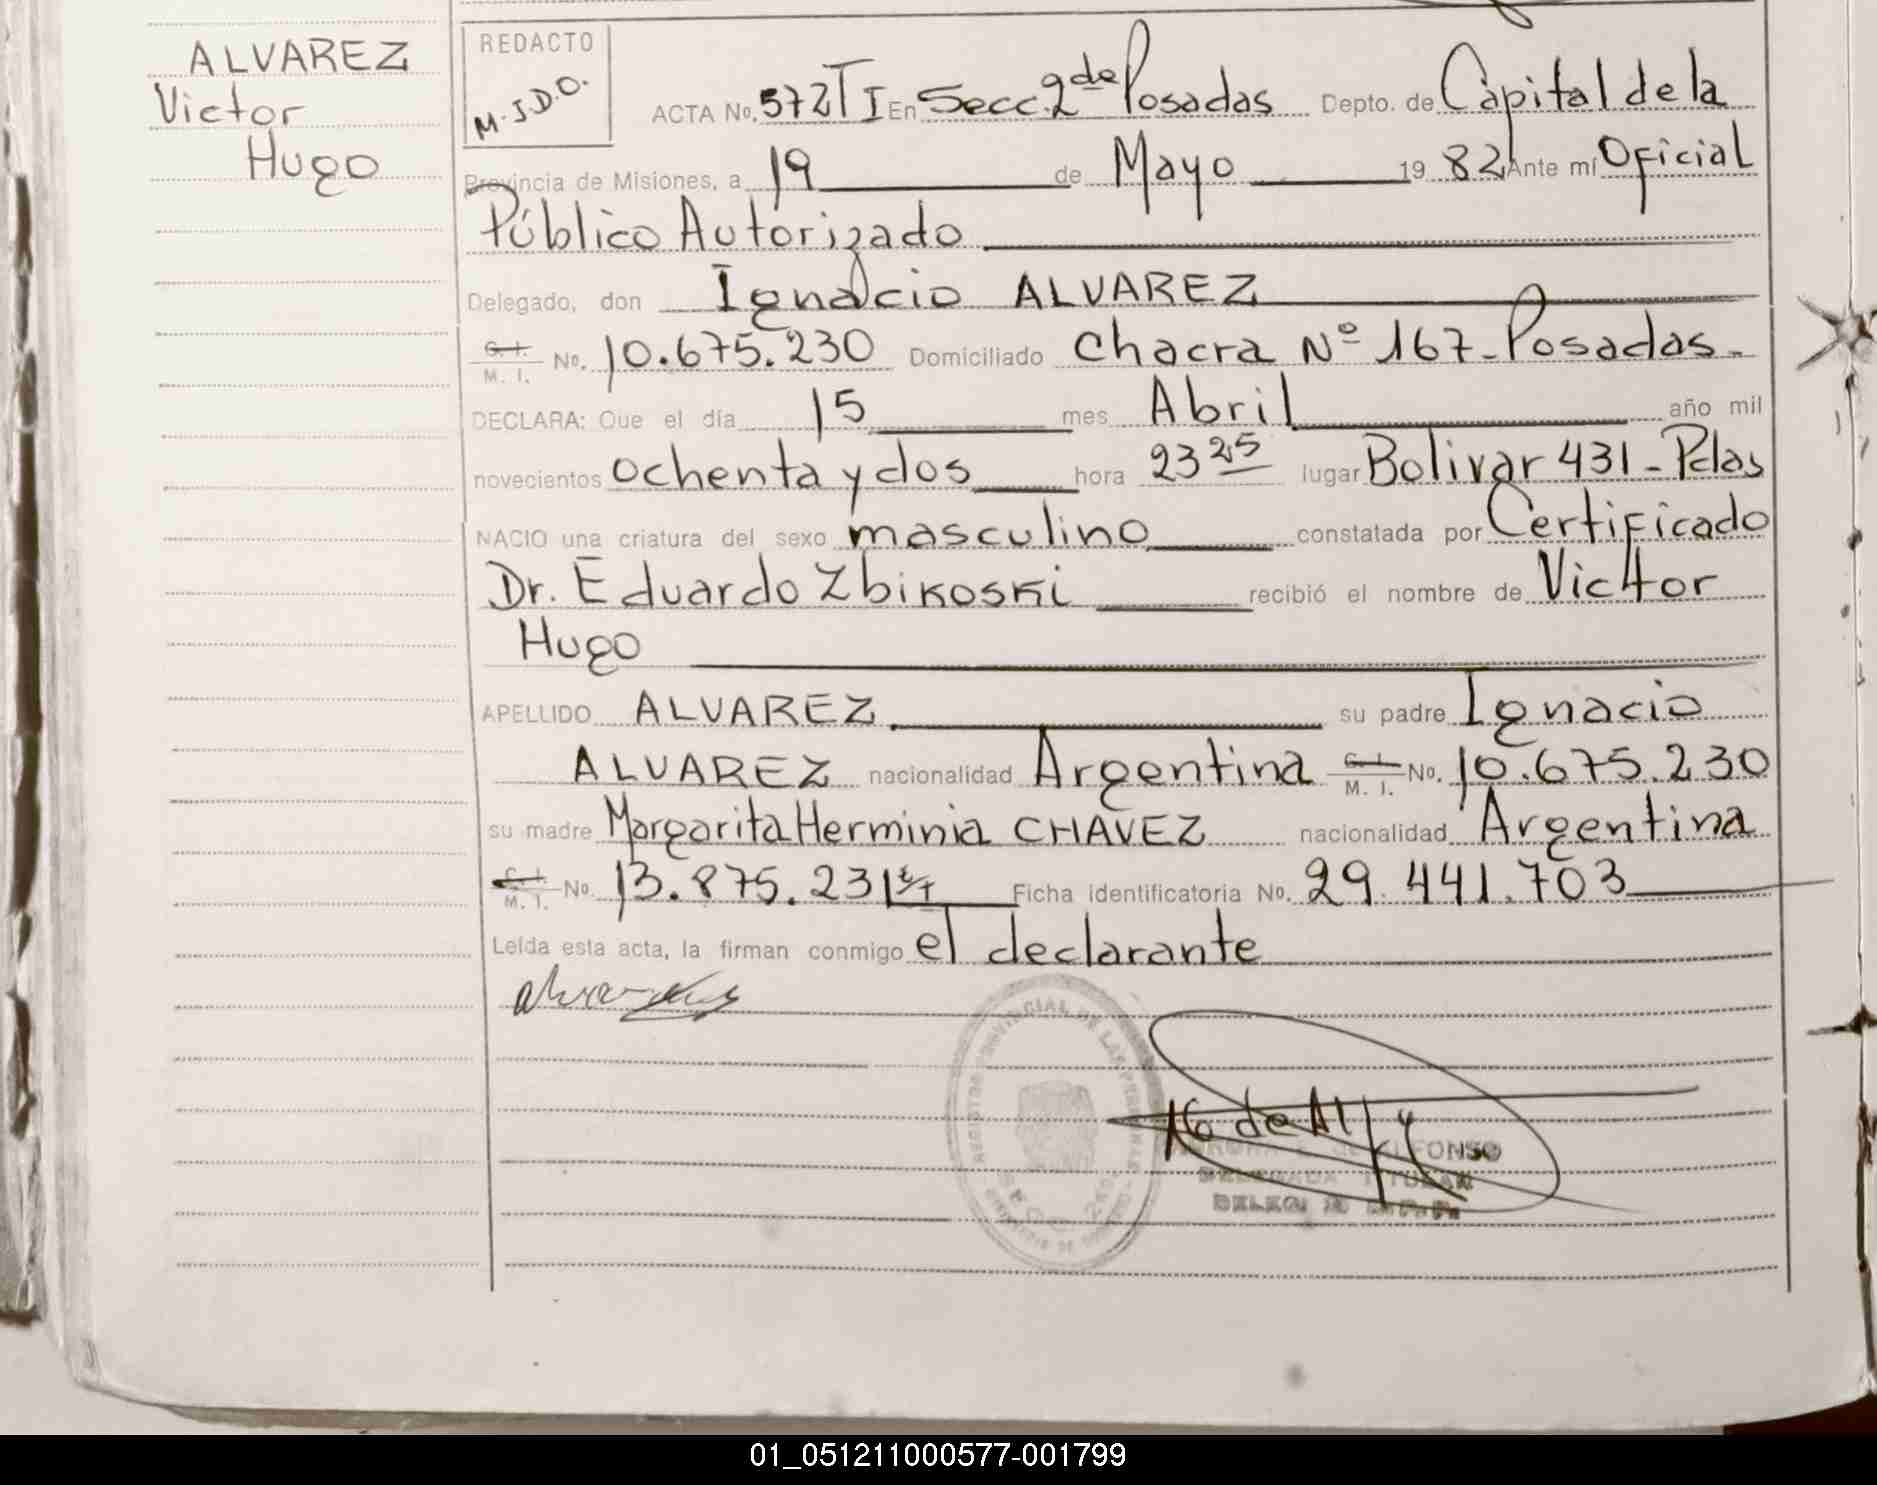 ALVAREZ
Victor
Hugo
REDACTO
M.J.D.O.
ACTA No. 572 T I En Secc. 2da Posadas Depto. de Capital de la
Provincia de Misiones, a 19 de Mayo 1982 Ante mí Oficial
Público Autorizado
Delegado, don Ignacio ALVAREZ
C. I. M. I. No. 10.675.230 Domiciliado Chacra Nº 167-Posadas.-
DECLARA: Que el día 15 mes Abril año mil
novecientos ochenta y dos hora 23 25 lugar Bolivar 431-Pdas
NACIO una criatura del sexo masculino constatada por Certificado
Dr. Eduardo Zbikoski recibió el nombre de Victor
Hugo
APELLIDO ALVAREZ su padre Ignacio
ALVAREZ nacionalidad Argentina C. I. M. I. No. 10.675.230
su madre Margarita Herminia CHAVEZ nacionalidad Argentina
C. I. M. I. No. 13.875.231 Ficha identificatoria No. 29.441.703
Leída esta acta, la firman conmigo el declarante
REGISTRO PROVINCIAL DE LAS PERSONAS
ALFONSO
DELEGADA TITULAR
01_051211000577-001799